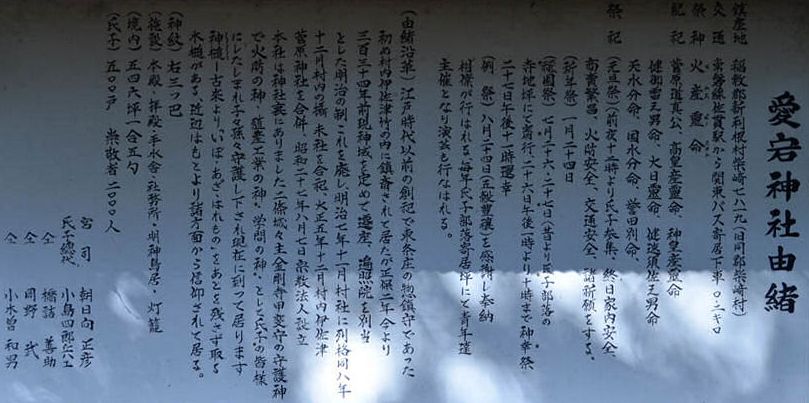 愛宕神社由緒
鎮座地 稲敷郡新利根村柴崎七八一九(旧川郡柴崎村)
交通 常磐線佐貫駅から関東バス寄居下車〇・二キロ
祭神 火産霊命
配祀 菅原道真公、高皇産霊命、神皇産霊命
健御雷之男命、大日霊命、健速須佐之男命
天水分命、国水分命、誉田別命
祭祀 (元旦祭)前夜十二時より氏子参集、終日家内安全
商売繁昌、火防安全、交通安全、諸祈願をする。
(祈年祭)一月二十四日
(祇園祭)七月二十六・二十七日(昔より氏子部落の
寺地坪にて斎行、二十六日午後八時より十時まで神幸祭
二十七日午後十一時還幸
(例祭)八月二十四日(五穀豊穣)を感謝し奉納
相撲が行はれる毎年氏子部落寄居坪にて青年達
主催となり演芸も行なはれる。
(由緒沿革)江戸時代以前の創祀で東条庄の惣鎮守であった
初め村内伊佐津竹の内に鎮斎されて居たが正保二年今より
三百三十四年前現神域を定めて遷座、遍照院を別当
とした明治の制これを廃し明治七年十一月村社に列格同八年
十二月村内の摂末社を合祀、大正五年十二月村内伊佐津
菅原神社を合併、昭和二十七年八月七日宗教法人設立
本社は神社裏にありました二條城々主金剛寺田夔守の守護神
で火防の神、殖産工業の神、学問の神、として氏子の皆様
にしたしまれ子々孫々守護し下され現在に到って居ります
神桶し古来よりいぼ、あざはれものをあとを残さず取る
木槌がある、近辺はもとより諸方面から信仰されて居る。
(施設)本殿・拝殿・手水舎・社務所・明神鳥居・灯籠
(境内)五四六坪一合五勺
(神紋)右三ツ巴
(氏子)五〇〇戸 崇敬者二〇〇〇人
宮司 朝日向正彦
氏子総代 小島四郎兵エ
仝 橋詰善助
仝 岡野武
仝 小木曽和男